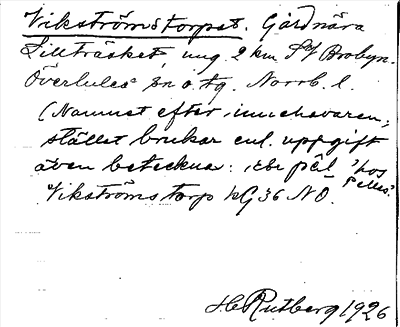 Vikströmstorpet. Gård nära
Lillträsket, ung. 2 km SV Brobyn.
Överlules sn o. tg. Norrb. l.
(Namnet efter innehavaren;
stället brukar enl. uppgift
även betecknas: "hos
Pelles".
Vikströms torp kG 36 NO.
H C Rutberg 1926